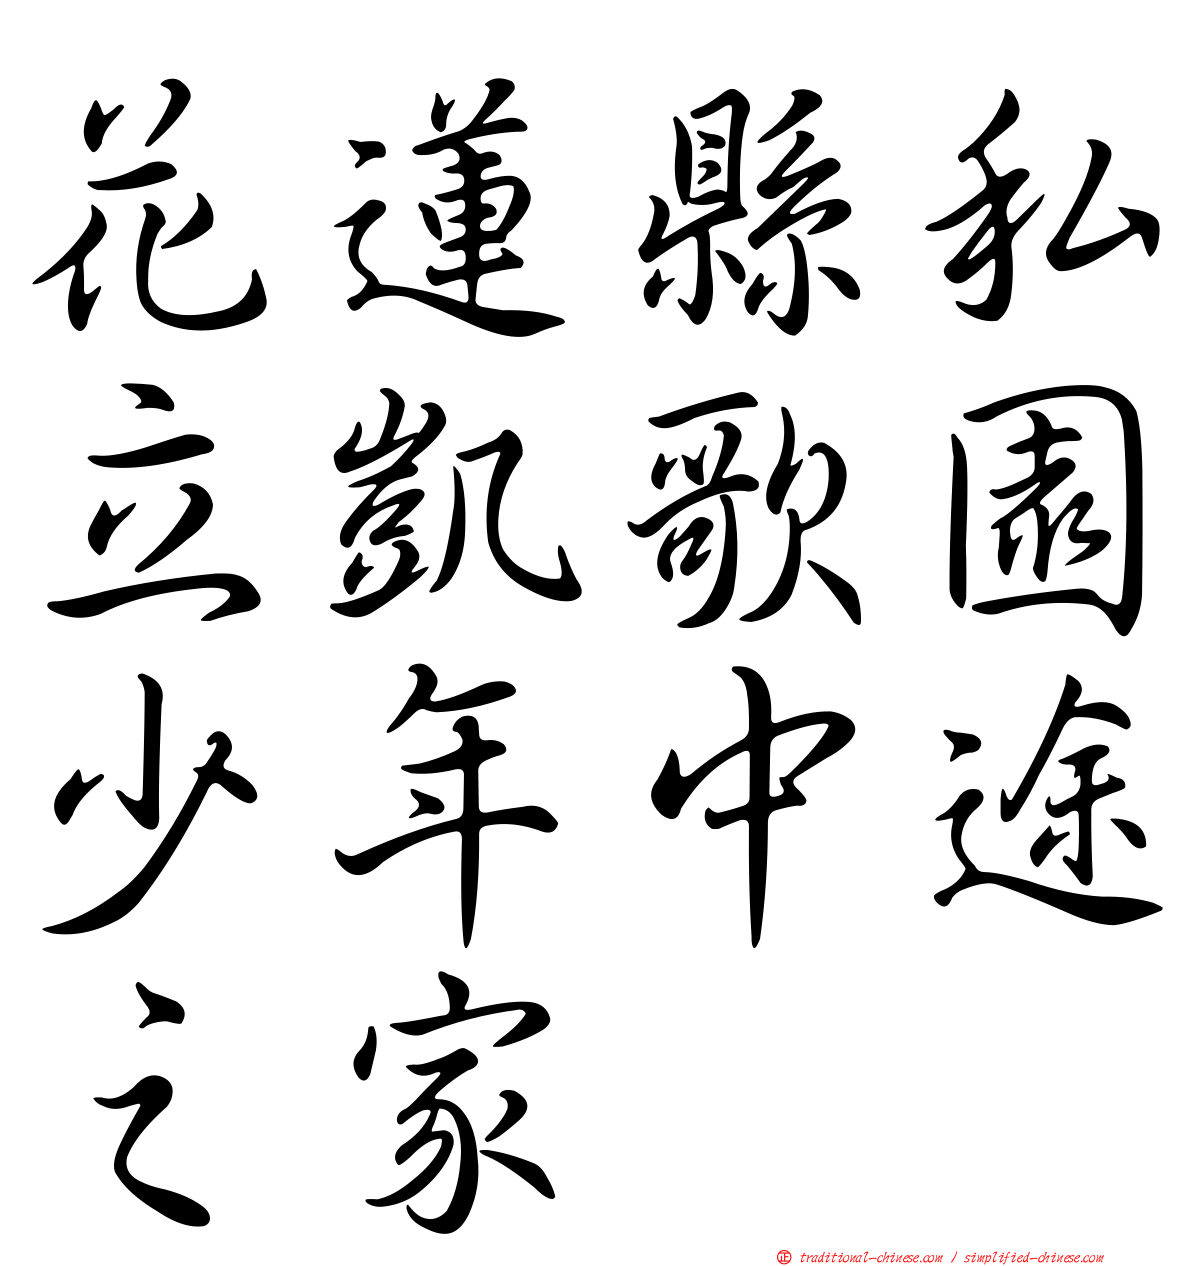 花蓮縣私
立凱歌園
少年中途
之家
正 traditional-chinese.com / simplified-chinese.com